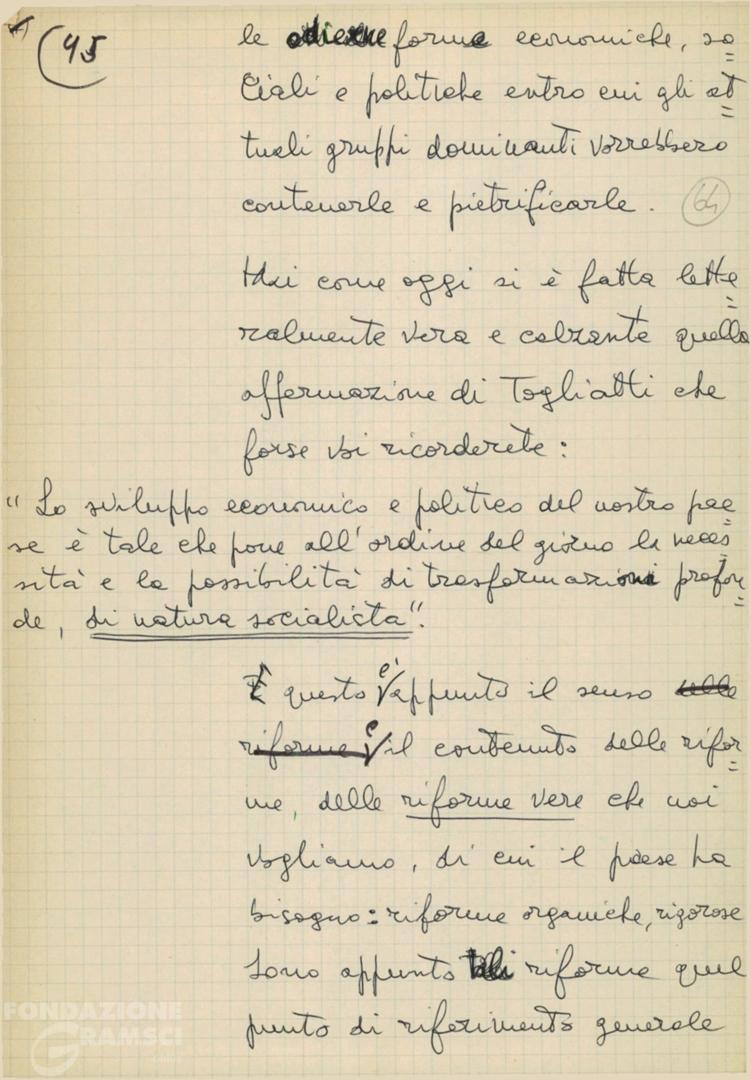 45
le odierne forme economiche, so=
ciali e politiche entro cui gli at=
tuali gruppi dominanti vorrebbero
contenerle e pietrificarle.
64
Mai come oggi si è fatta lette=
ralmente vera e calzante quella
affermazione di Togliatti che
forse voi ricorderete:
"Lo sviluppo economico e politico del nostro pae=
se è tale che pone all'ordine del giorno la neces=
sità e la possibilità di trasformazioni profon=
de, di natura socialista".
E questo è appunto il senso delle
riforme e il contenuto delle rifor=
me, delle riforme vere che noi
vogliamo, di cui il paese ha
bisogno: riforme organiche, rigorose
Sono appunto tali riforme quel
punto di riferimento generale
FONDAZIONE
GRAMSCI